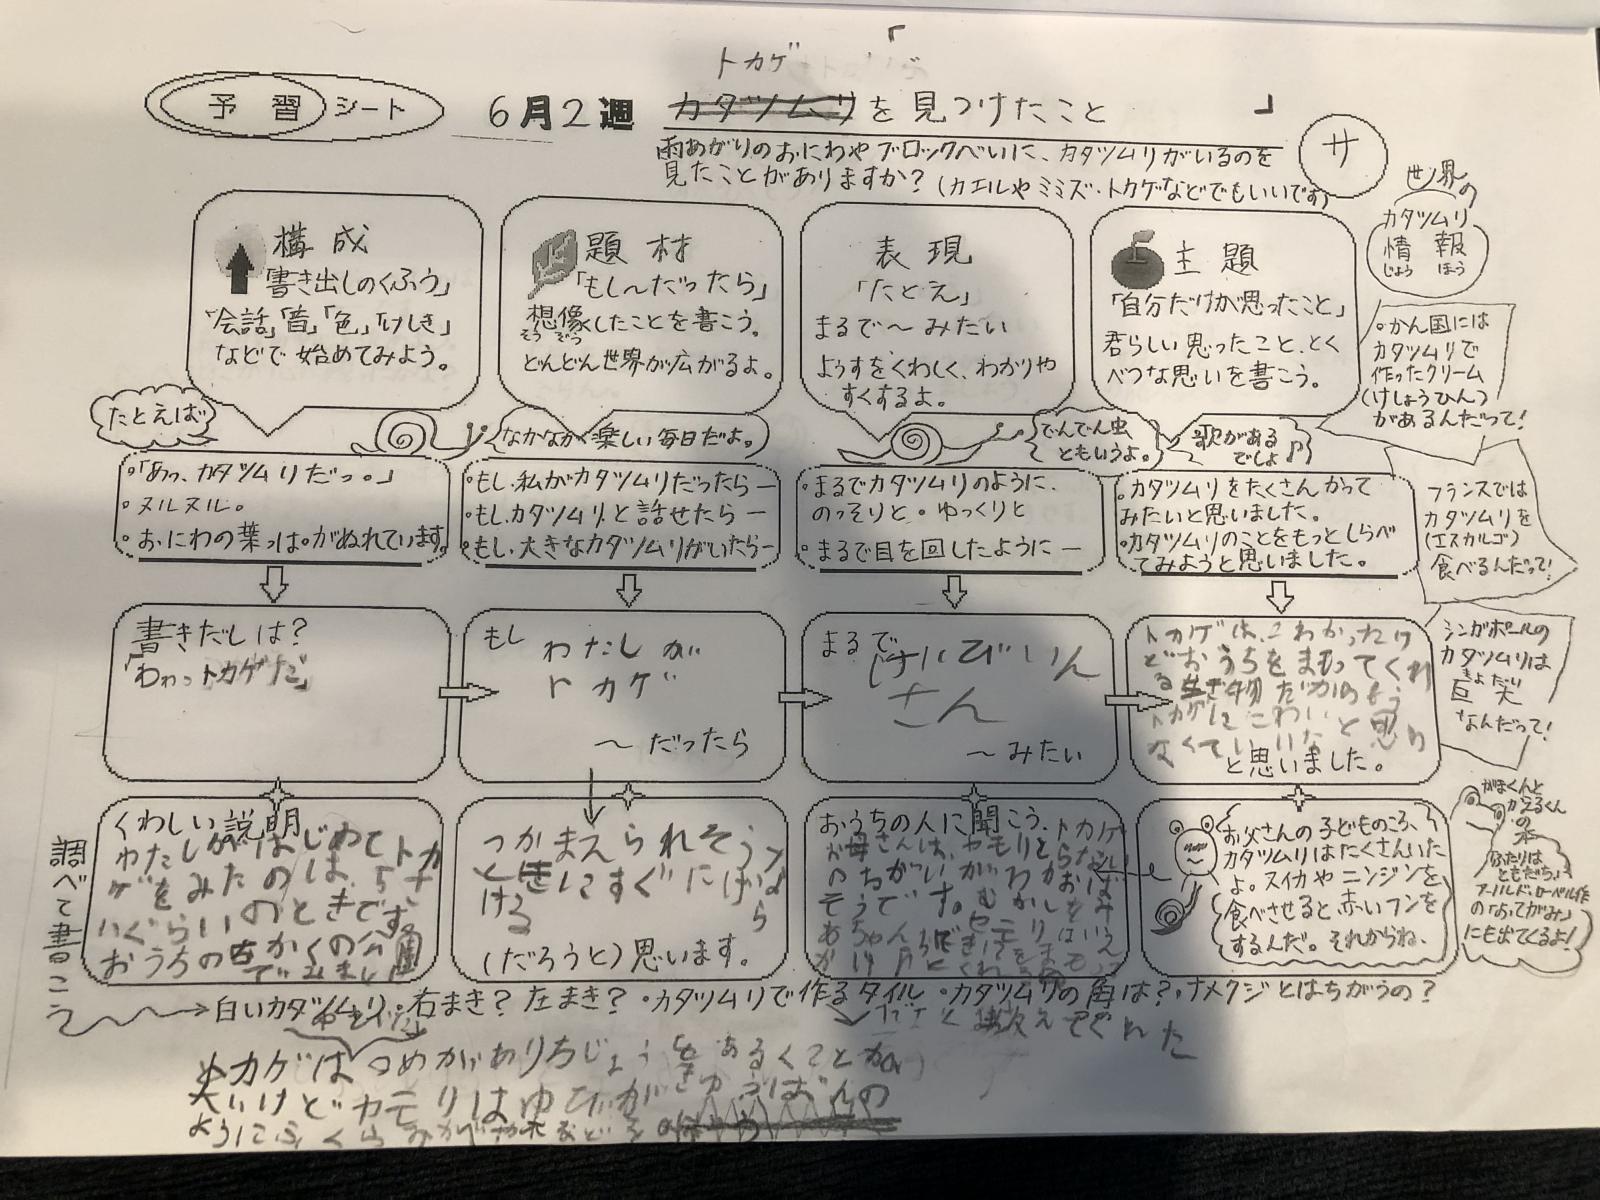 「
トカゲ
予習シート
6月2週
カタツムリを見つけたこと
」
雨あがりのおにわやブロックべいに、カタツムリがいるのを
見たことがありますか？(カエルやミミズ・トカゲなどでもいいです)
サ
世界の
カタツムリ
情報
じょう ほう
構成
「書き出しのくふう」
「会話」「音」「色」「けしき」
などで始めてみよう。
題材
「もし〜だったら」
想像したことを書こう。
そう ぞう
どんどん世界が広がるよ。
表現
「たとえ」
まるで〜みたい
ようすをくわしく、わかりや
すくするよ。
主題
「自分だけが思ったこと」
君らしい思ったこと、とく
べつな思いを書こう。
。かん国には
カタツムリで
作ったクリーム
(けしょうひん)
があるんだって！
たとえば
なかなかく楽しい毎日だよ。
でんでん虫
ともいうよ。
歌がある
でしょ♪
・「あっ、カタツムリだっ。」
・ヌルヌル。
・おにわの葉っぱがぬれています。
・もし、私がカタツムリだったら―
・もし、カタツムリと話せたら―
・もし、大きなカタツムリがいたら―
・まるでカタツムリのように、
のっそりと・ゆっくりと
・まるで目を回したように―
・カタツムリをたくさんかって
みたいと思いました。
・カタツムリのことをもっとしらべ
てみようと思いました。
フランスでは
カタツムリを
(エスカルゴ)
食べるんだって！
書きだしは？
「わわっトカゲだ」
もし
わたしが
トカゲ
〜だったら
まるで
けいびいん
さん
〜みたい
トカゲは、こわかったけ
どおうちをまもってくれ
る生き物だから
トカゲに こわいと思わ
なくていいな
と思いました。
シンガポールの
カタツムリは
きょだい
巨大
なんだって！
くわしい説明
わたしがはじめてトカ
ゲをみたのは、5才
いぐらいのときです。
おうちのちかくの公園
でみました
つかまえられそうな
ときにすぐににげら
ける
(だろうと)思います。
おうちの人に聞こう。
お母さんは、やもりと
のちがいが わからない
そうです。むかし
お父さんの子どものころ、
カタツムリはたくさんいた
よ。スイカやニンジンを
食べさせると、赤いフンを
するんだ。それからね、
がまくんと
かえるくん
の本
ふたりは
ともだち
アーノルド・ローベル作
の「おてがみ」
にも出てくるよ！
調べて書こう
白いカタツムリ・右まき？左まき？・カタツムリで作るタイル・カタツムリの角は？・ナメクジとはちがうの？
と教えてくれた
トカゲはつめがあり ちじょうをあるくことが
大いけどヤモリはゆびがきゅうばんの
ようにふくらみ